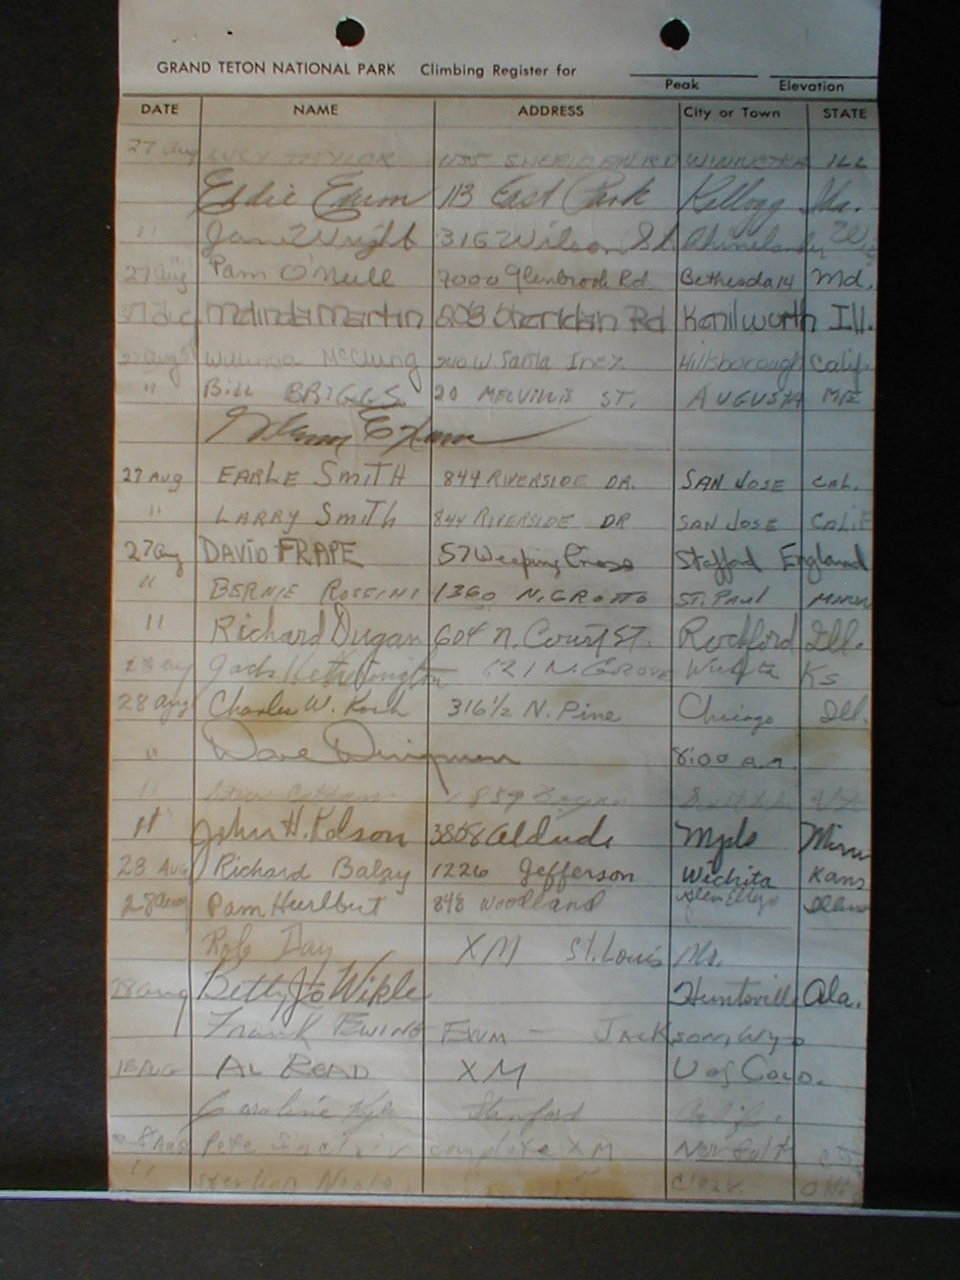 GRAND TETON NATIONAL PARK Climbing Register for
Peak Elevation
DATE NAME ADDRESS City or Town STATE
27 Aug LUCY TAYLOR SHERIDAN RD WINNETKA ILL
Eddie Exum 113 East Park Kellogg Ida.
" Jane Wright 316 Wilson St. Rhinelander
27 Aug Pam O'Neill 7000 Glenbrook Rd Bethesda 14 Md.
Malinda Martin Sheridan Rd Kenilworth Ill.
McClung 240 W. Santa Inez Hillsborough Calif.
" BILL BRIGGS 20 MELVILLE ST. AUGUSTA ME
Glenn Exum
27 AUG EARLE SMITH 844 RIVERSIDE DR. SAN JOSE CAL.
" LARRY SMITH 844 RIVERSIDE DR SAN JOSE CALIF
27 Aug DAVID FRAPE 57 Weeping Cross Stafford England
" BERNIE ROSSINI 1360 N. GROTTO ST. PAUL MINN
" Richard Dugan 604 N. Court St. Rockford Ill.
28 Aug Jack Hetherington 121 N. GROVE Wichita Ks
28 Aug Charles W. Koch 316 1/2 N. Pine Chicago Ill.
" Dave Dingman 8:00 a.m.
"
" John H. 3858 Mpls Minn
28 Aug Richard Balay 1226 Jefferson Wichita Kans
28 Aug Pam Hurlbut 848 Woodland Glen Ellyn
Rob Day XM St. Louis Mo.
28 Aug Betty Jo Wikle Huntsville Ala.
Frank EWING EXUM - JACKSON, Wyo
AUG AL READ XM U of Colo.
Caroline Stanford Calif.
8 Aug Pete Sinclair XM
" "